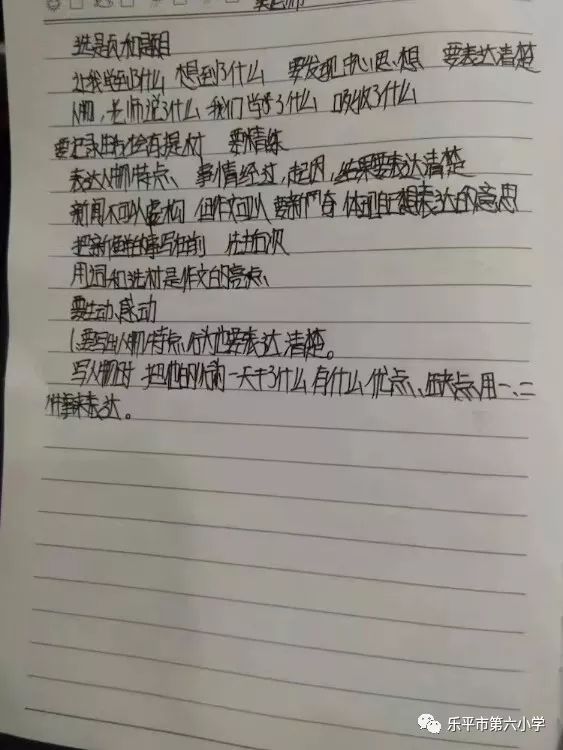 让我学到了什么 想到了什么 要发现中心思想 要表达清楚
人物,老师说了什么 我们学了什么 吸收了什么
要记录生活会有提材 要精练
表达人物特点、事情经过,起因,结果要表达清楚
新闻不可以虚构 但作文可以 要新 体现自己想表达的意思
把新鲜的事写在前
用词和选材是作文的亮点、
要生动、感动
1、要写出人物特点、行为也要表达清楚。
写人物时 把他的 一天干了什么 有什么优点、 点 用一、二
件事来表达。
乐平市第六小学